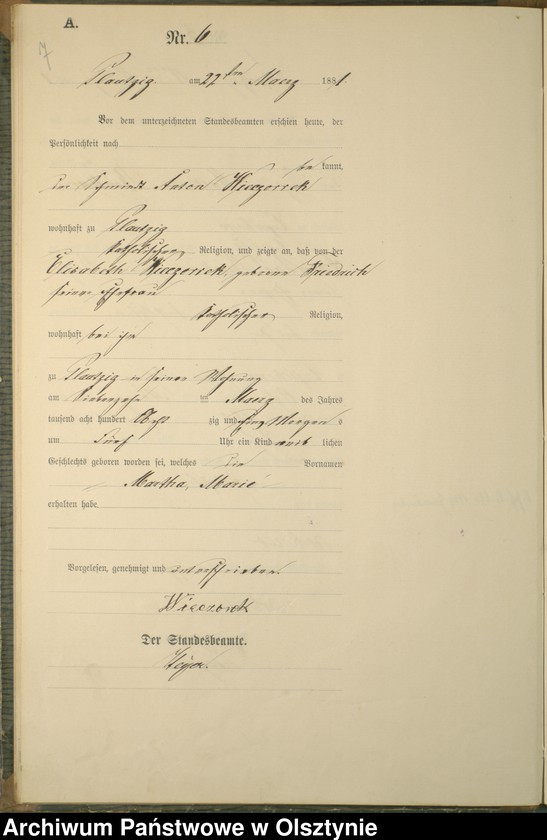 A.
7
Nr. 6
Plautzig am 22ten Maerz 1881.
Vor dem unterzeichneten Standesbeamten erschien heute, der
Persönlichkeit nach
be kannt,
der Schmiedt Anton Wieczorrek
wohnhaft zu Plautzig
katholischer Religion, und zeigte an, daß von der
Elisabeth Wieczorrek, geborene Friedrich
seiner Ehefrau
katholischer Religion,
wohnhaft bei ihm
zu Plautzig in seiner Wohnung
am Siebenzehn ten Maerz des Jahres
tausend acht hundert Acht zig und eins Morgen s
um Fünf Uhr ein Kind weib lichen
Geschlechts geboren worden sei, welches die Vornamen
Martha, Marie
erhalten habe
Vorgelesen, genehmigt und unterschrieben.
Wieczorek
Der Standesbeamte.
Archiwum Państwowe w Olsztynie